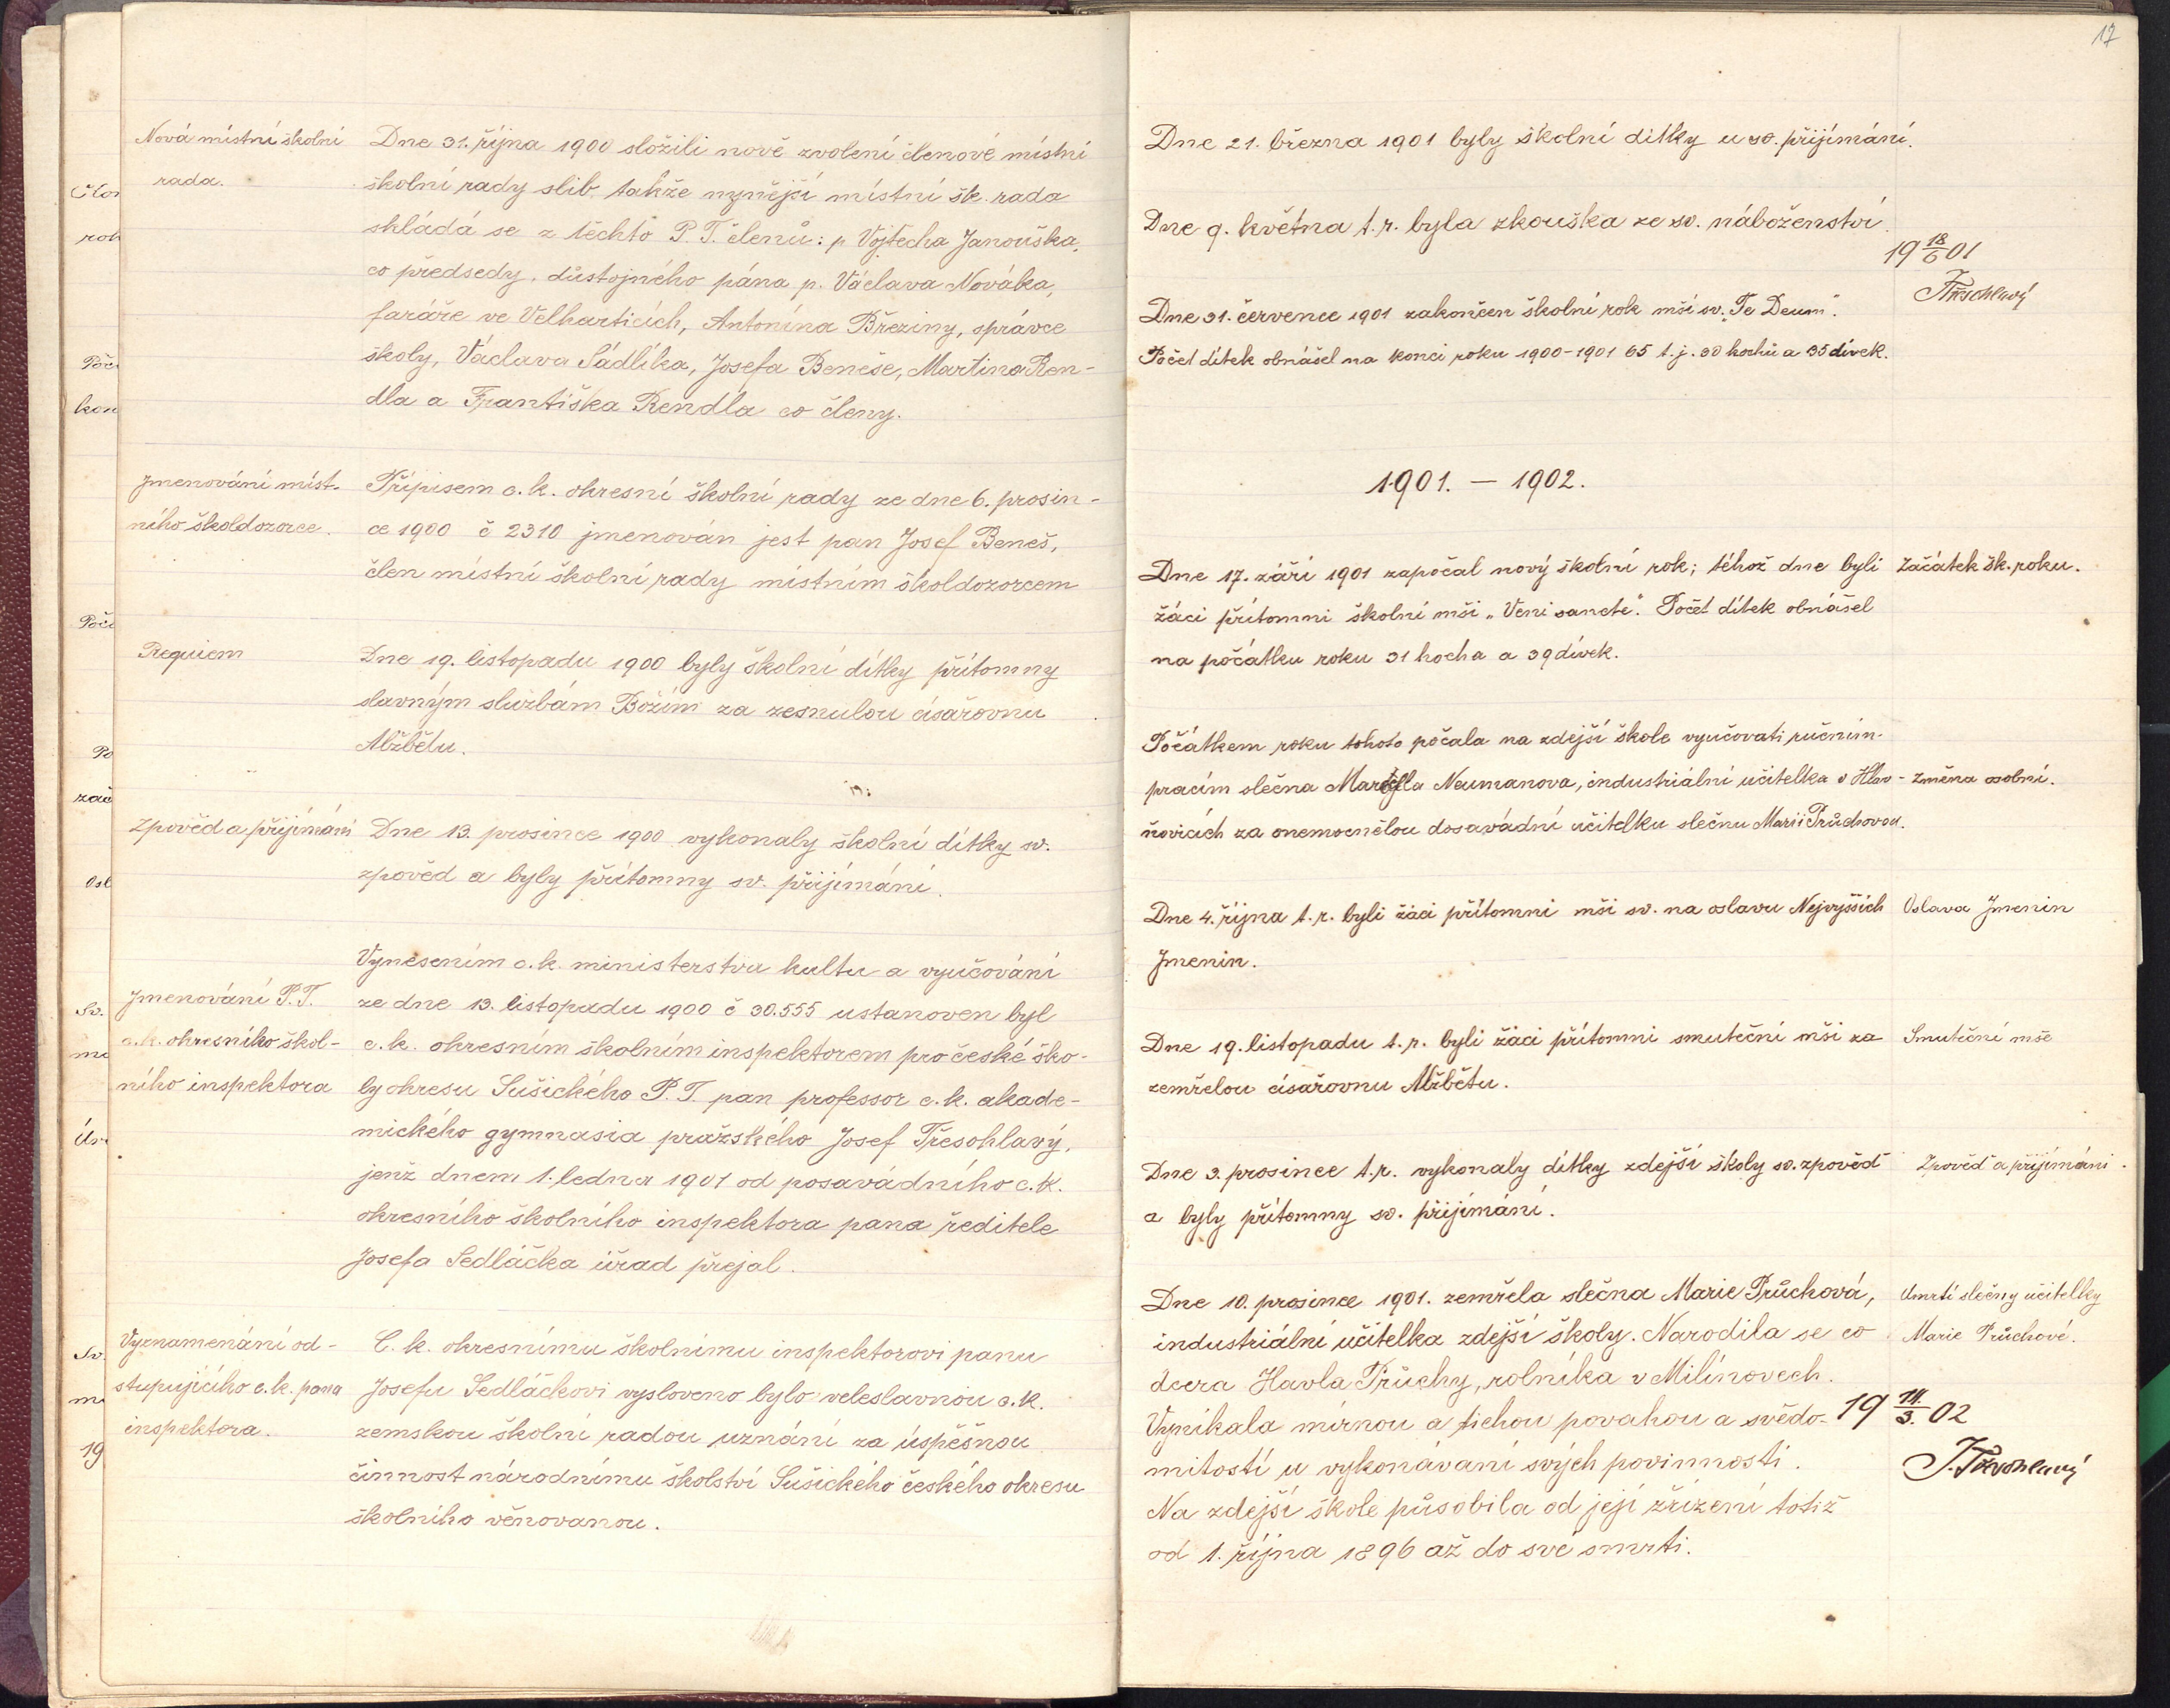 Nová místní školní
rada.
Dne 31. října 1900 složili nově zvolení členové místní
školní rady slib, takže nynější místní šk. rada
skládá se z těchto P. T. členů: p Vojtěcha Janouška,
co předsedy, důstojného pána p. Václava Nováka,
faráře ve Velharticích, Antonína Březiny, správce
školy, Václava Sádlíka, Josefa Beneše, Martina Ren-
dla a Františka Rendla co členy.
Jmenování míst-
ního školdozorce.
Přípisem c. k. okresní školní rady ze dne 6. prosin-
ce 1900 č 2310 jmenován jest pan Josef Beneš,
člen místní školní rady místním školdozorcem
Requiem
Dne 19. listopadu 1900 byly školní dítky přítomny
slavným službám Božím za zesnulou císařovnu
Alžbětu.
Zpověď a přijímání
Dne 13. prosince 1900 vykonaly školní dítky sv.
zpověď a byly přítomny sv. přijímání.
Jmenování P. T.
c. k. okresního škol-
ního inspektora
Vynesením c. k. ministerstva kultu a vyučování
ze dne 13. listopadu 1900 č 30.555 ustanoven byl
c. k. okresním školním inspektorem pro české ško-
ly okresu Sušického P. T. pan professor c. k. akade-
mického gymnasia pražského Josef Třesohlavý,
jenž dnem 1. ledna 1901 od posavádního c. k.
okresního školního inspektora pana ředitele
Josefa Sedláčka úřad přejal.
Vyznamenání od-
stupujícího c. k. pana
inspektora.
C. k. okresnímu školnímu inspektorovi panu
Josefu Sedláčkovi vysloveno bylo veleslavnou c. k.
zemskou školní radou uznání za úspěšnou
činnost národnímu školství Sušického českého okresu
školního věnovanou.
17
Dne 21. března 1901 byly školní dítky u sv. přijímání.
Dne 9. května t. r. byla zkouška ze sv. náboženství.
19 18/6 01
Třesohlavý
Dne 31. července 1901 zakončen školní rok mší sv. „Te Deum“.
Počet dítek obnášel na konci roku 1900-1901 65 t. j. 30 hochů a 35 dívek.
1901. — 1902.
Dne 17. září 1901 započal nový školní rok; téhož dne byli
žáci přítomni školní mši „Veni sancte“. Počet dítek obnášel
na počátku roku 31 hocha a 39 dívek.
Začátek šk. roku.
Počátkem roku tohoto počala na zdejší škole vyučovati ručním
pracím slečna Marcella Neumanova, industriální učitelka v Hlav-
ňovicích za onemocnělou dosavádní učitelku slečnu Marii Průchovou.
Změna osobní.
Dne 4. října t. r. byli žáci přítomni mši sv. na oslavu Nejvyšších
Jmenin.
Oslava Jmenin
Dne 19. listopadu t. r. byli žáci přítomni smuteční mši za
zemřelou císařovnu Alžbětu.
Smuteční mše
Dne 3. prosince t. r. vykonaly dítky zdejší školy sv. zpověď
a byly přítomny sv. přijímání.
Zpověď a přijímání.
Dne 10. prosince 1901. zemřela slečna Marie Průchová,
industriální učitelka zdejší školy. Narodila se co
dcera Havla Průchy, rolníka v Milínovech.
Vynikala mírnou a tichou povahou a svědo-
mitostí u vykonávaní svých povinností.
Na zdejší škole působila od její zřízení totiž
od 1. října 1896 až do své smrti.
Úmrtí slečny učitelky
Marie Průchové.
19 14/3. 02
J. Třesohlavý